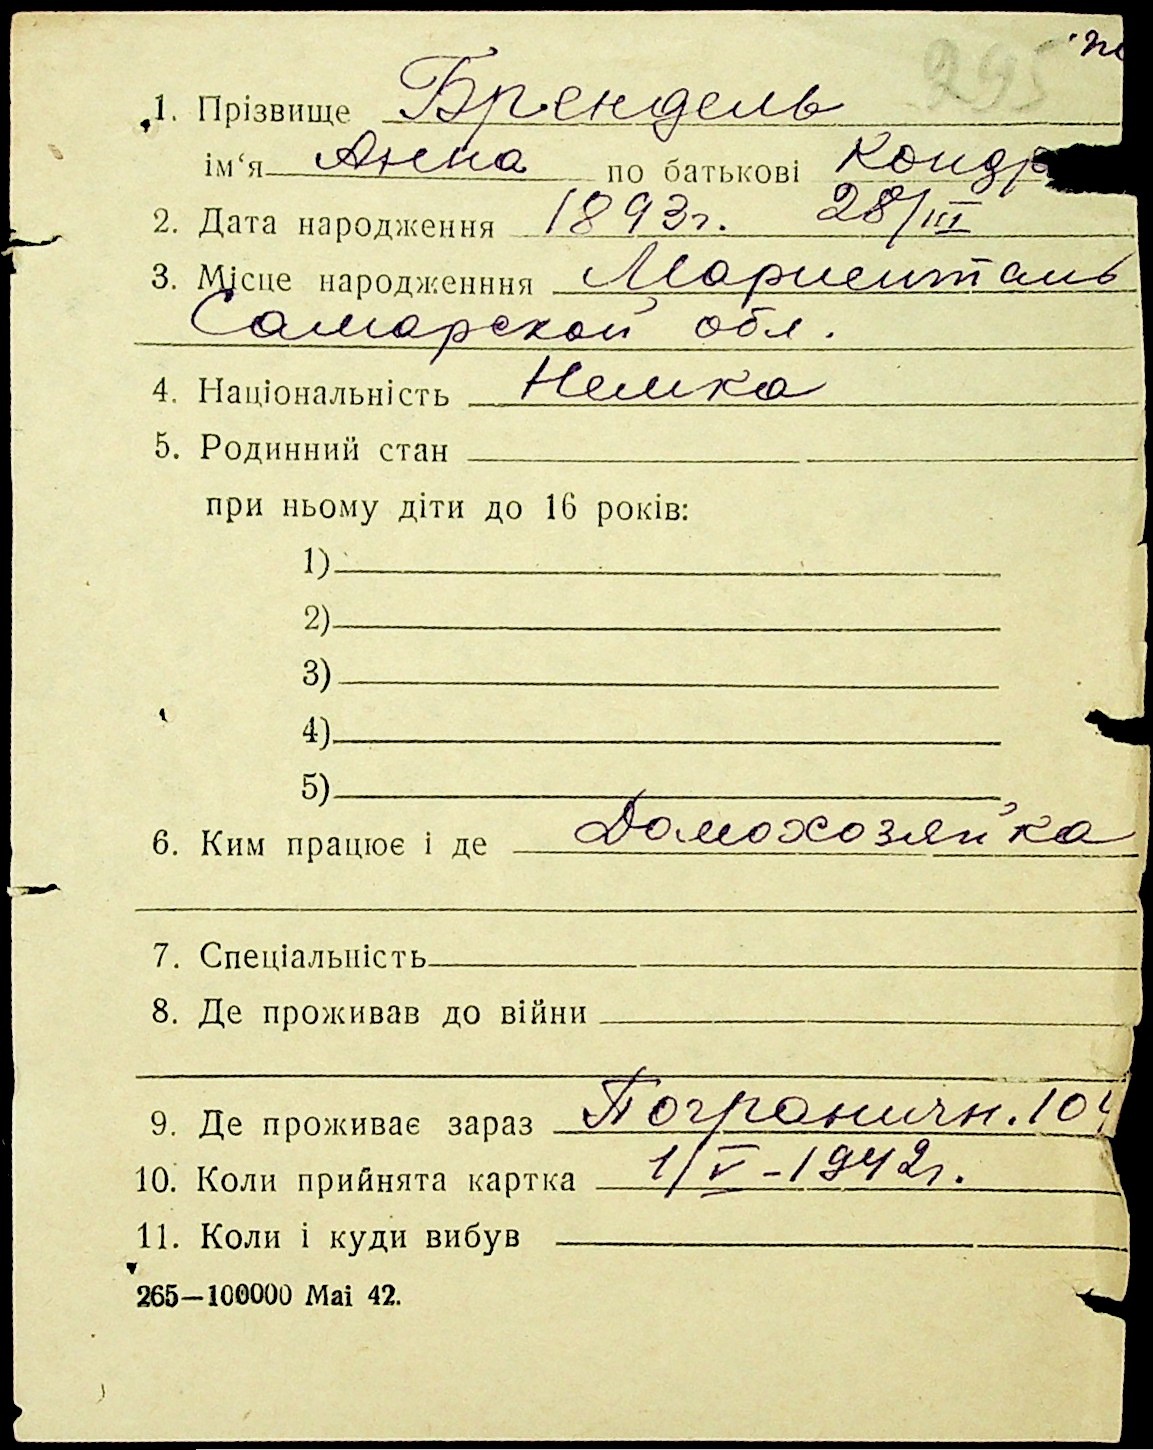 295
1. Прізвище Брендель
ім‘я Анна по батькові Кондр
2. Дата народження 1893г. 28/III
3. Місце народженння Мариенталь
Самарской обл.
4. Національність Немка
5. Родинний стан
при ньому діти до 16 років:
1)
2)
3)
4)
5)
6. Ким працює і де Домохозяйка
7. Спеціальність
8. Де проживав до війни
9. Де проживає зараз Пограничн. 104
10. Коли прийнята картка 1/V-1942г.
11. Коли і куди вибув
265—100000 Mai 42.